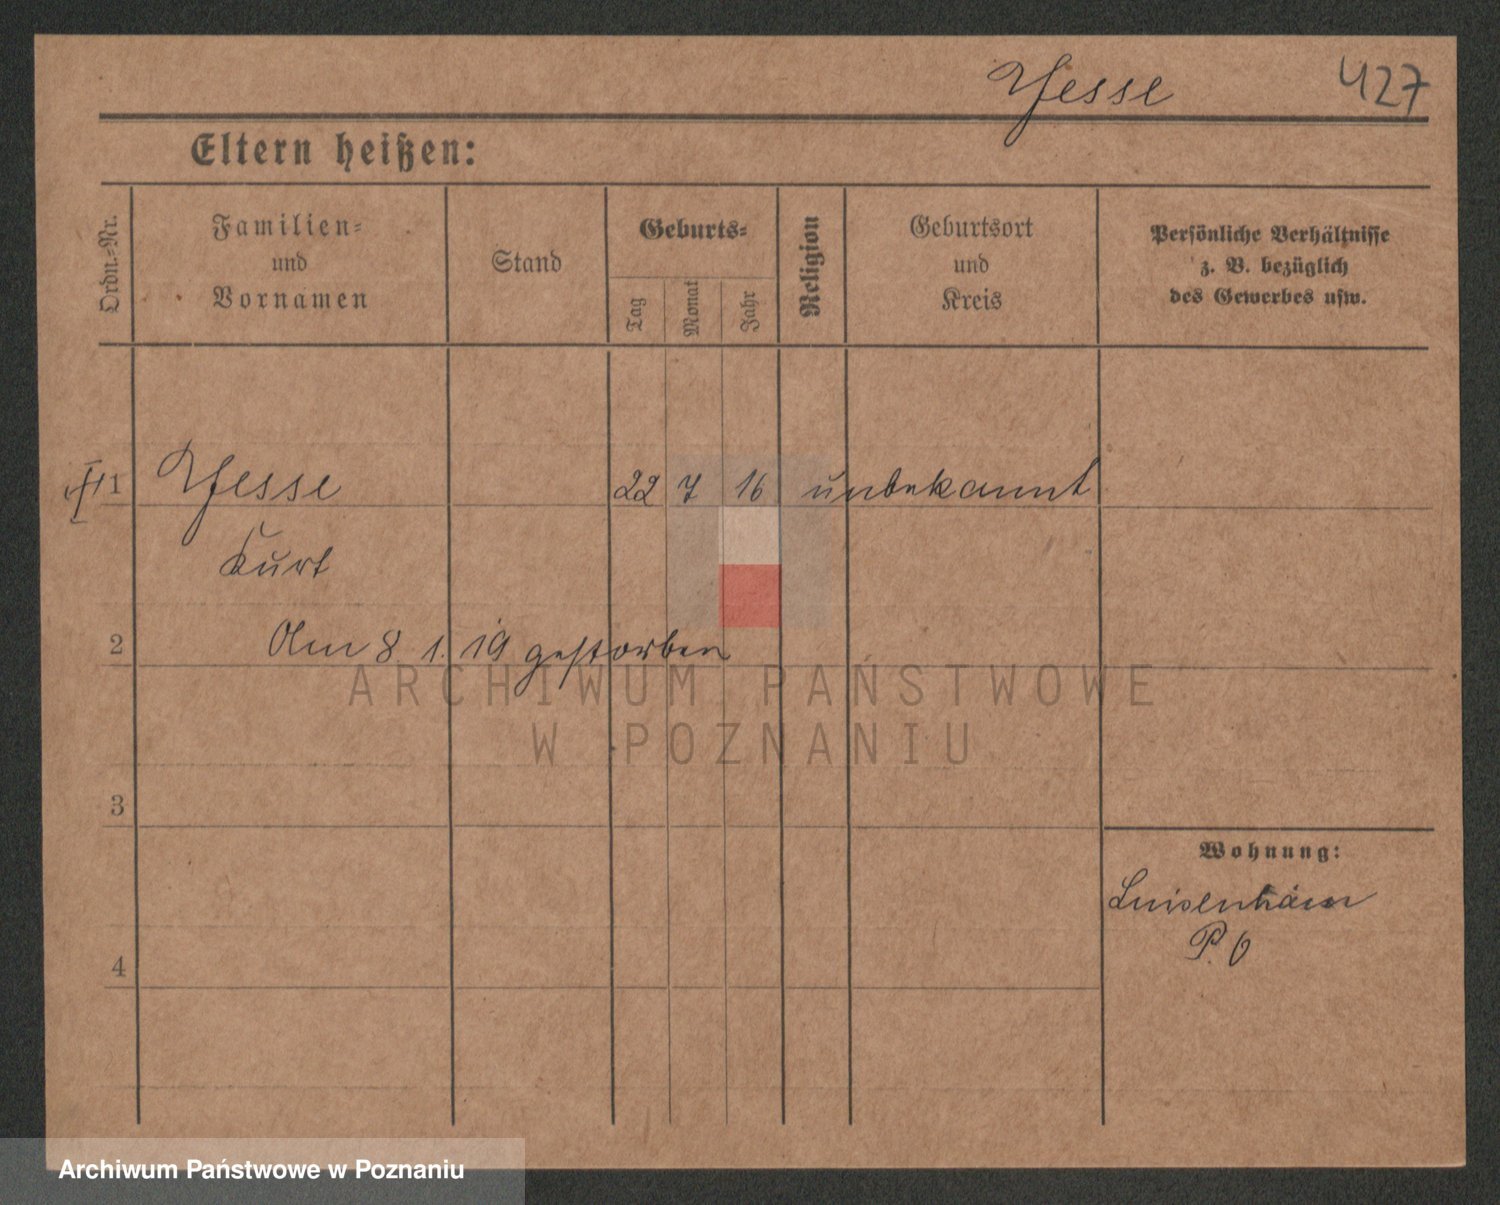 Jesse 427
Eltern heißen:
Ordn.-Nr.
Familien-
und
Vornamen
Stand
Geburts-
Tag
Monat
Jahr
Religion
Geburtsort
und
Kreis
Persönliche Verhältnisse
z. B. bezüglich
des Gewerbes usw.
1 Jesse 22 7 16 unbekannt
Kurt
2 Am 8. 1. 19 gestorben
ARCHIWUM PAŃSTWOWE
W POZNANIU
3
Wohnung:
Luisenhain
P. O
4
Archiwum Państwowe w Poznaniu